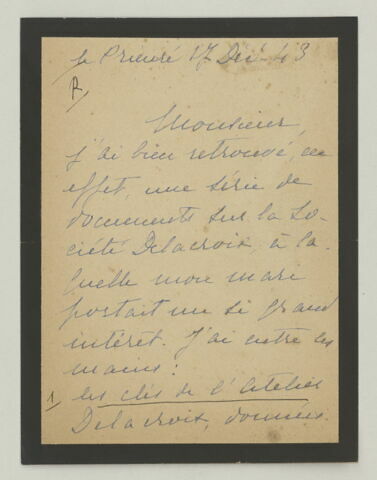 Le Prieuré 17 Déc. 43
R
Monsieur,
j'ai bien retrouvé, en
effet, une série de
documents sur la So-
ciété Delacroix, à la-
quelle mon mari
portait un si grand
intérêt. J'ai entre les
mains :
1, les clés de l'atelier
Delacroix, données